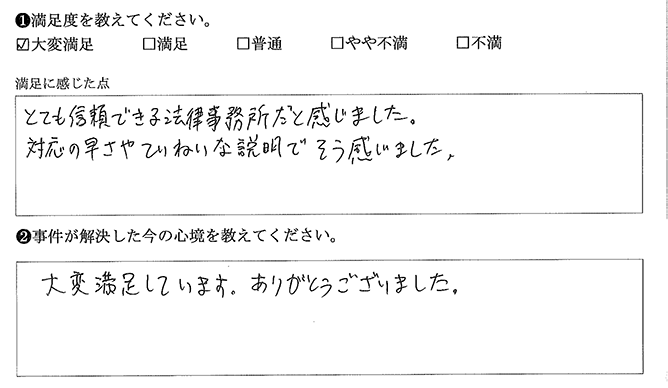 ❶満足度を教えてください。
☑大変満足 □満足 □普通 □やや不満 □不満
満足に感じた点
とても信頼できる法律事務所だと感じました。
対応の早さやていねいな説明でそう感じました。
❷事件が解決した今の心境を教えてください。
大変満足しています。ありがとうございました。